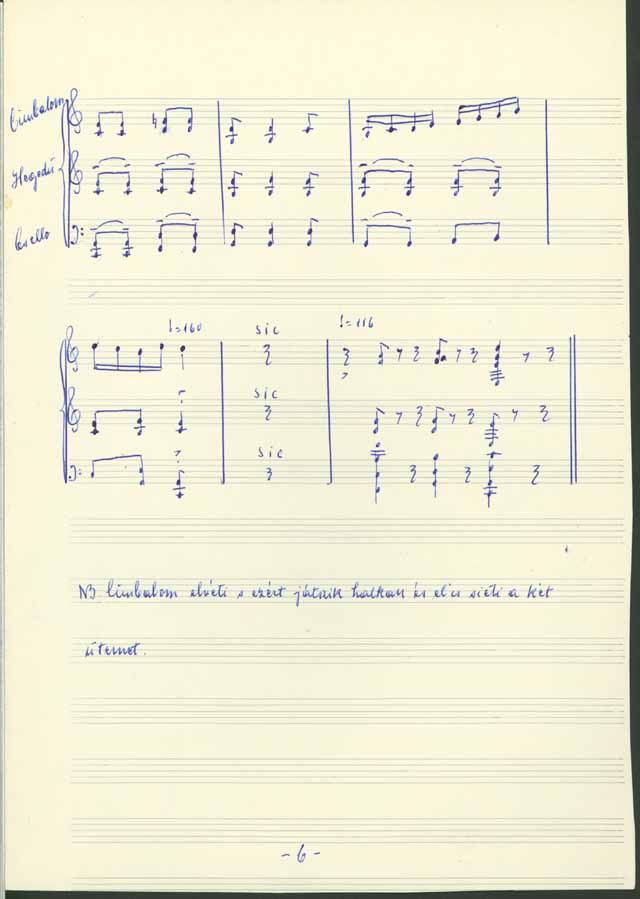 Cimbalom
Hegedű
Cselló
♩=160
sic
♩=116
sic
sic
NB Cimbalom elvéti s ezért játszik halkan és el is sieti a két
ütemet.
- 6 -